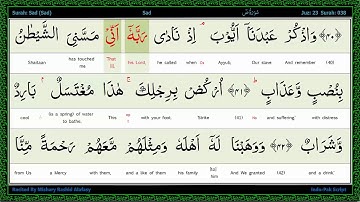 Surah: Sad (Sad) Sad سورۃ صٓ Juz: 23 Surah: 038
﴿٤٠﴾ وَاذْكُرْ عَبْدَنَآ اَيُّوْبَ ۘ اِذْ نَادٰى رَبَّهٗٓ اَنِّيْ مَسَّنِيَ الشَّيْطٰنُ
Shaitaan has touched me That I, his Lord, he called when Ayyub, Our slave And remember (40)
بِنُصْبٍ وَّعَذَابٍ ﴿٤١﴾ اُرْكُضْ بِرِجْلِكَ ۚ هٰذَا مُغْتَسَلٌۢ بَارِدٌ
cool (is a spring) of water to bathe, This with your foot. "Strike (41) and suffering." with distress
وَّشَرَابٌ ﴿٤٢﴾ وَوَهَبْنَا لَهٗٓ اَهْلَهٗ وَمِثْلَهُمْ مَّعَهُمْ رَحْمَةً مِّنَّا
from Us a Mercy with them, and a like of them his family [to] him And We granted (42) and a drink."
Recited By Mishary Rashid Alafasy Indo-Pak Script